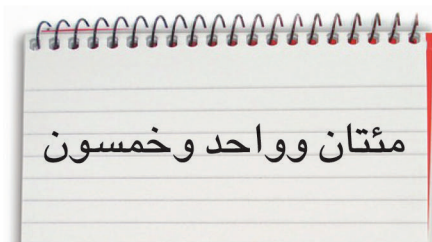 مئتان وواحد وخمسون